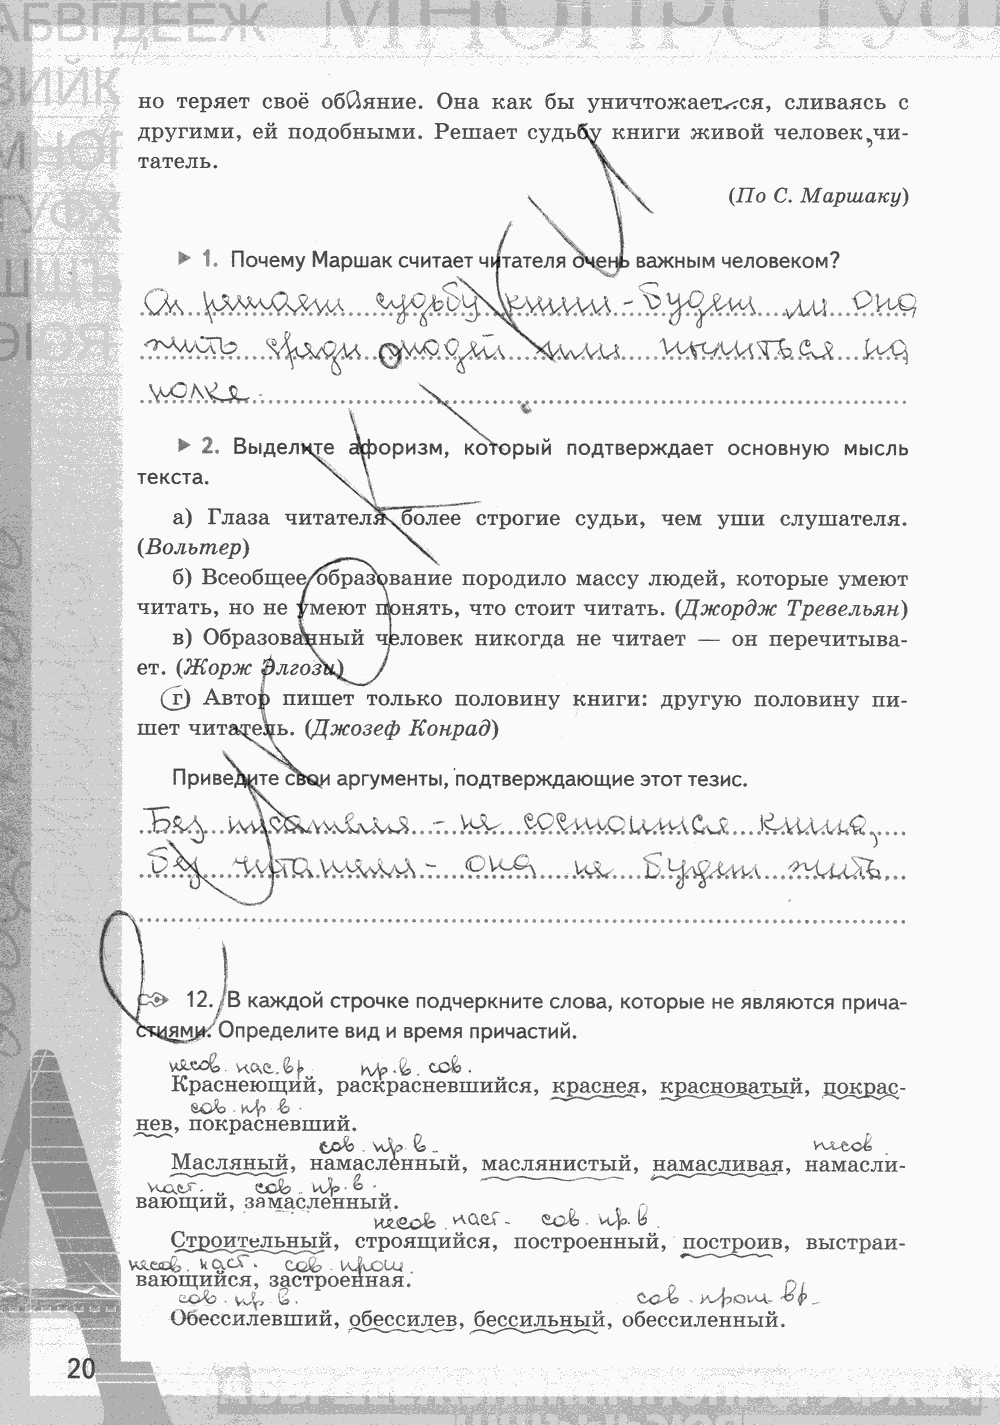 но теряет своё обаяние. Она как бы уничтожается, сливаясь с
другими, ей подобными. Решает судьбу книги живой человек, чи-
татель.
(По С. Маршаку)
1. Почему Маршак считает читателя очень важным человеком?
Он решает судьбу книги - будет ли она
жить среди людей или пылиться на
полке.
2. Выделите афоризм, который подтверждает основную мысль
текста.
а) Глаза читателя более строгие судьи, чем уши слушателя.
(Вольтер)
б) Всеобщее образование породило массу людей, которые умеют
читать, но не умеют понять, что стоит читать. (Джордж Тревельян)
в) Образованный человек никогда не читает — он перечитыва-
ет. (Жорж Элгози)
г) Автор пишет только половину книги: другую половину пи-
шет читатель. (Джозеф Конрад)
Приведите свои аргументы, подтверждающие этот тезис.
Без писателя - не состоится книга,
без читателя - она не будет жить.
12. В каждой строчке подчеркните слова, которые не являются прича-
стиями. Определите вид и время причастий.
несов. нас. вр. пр. в. сов.
Краснеющий, раскрасневшийся, краснея, красноватый, покрас-
сов. пр. в.
нев, покрасневший.
сов. пр. в. несов.
Масляный, намасленный, маслянистый, намасливая, намасли-
наст. сов. пр. в.
вающий, замасленный.
несов. наст. сов. пр. в.
Строительный, строящийся, построенный, построив, выстраи-
несов. наст. сов. прош.
вающийся, застроенная.
сов. пр. в. сов. прош. вр.
Обессилевший, обессилев, бессильный, обессиленный.
20